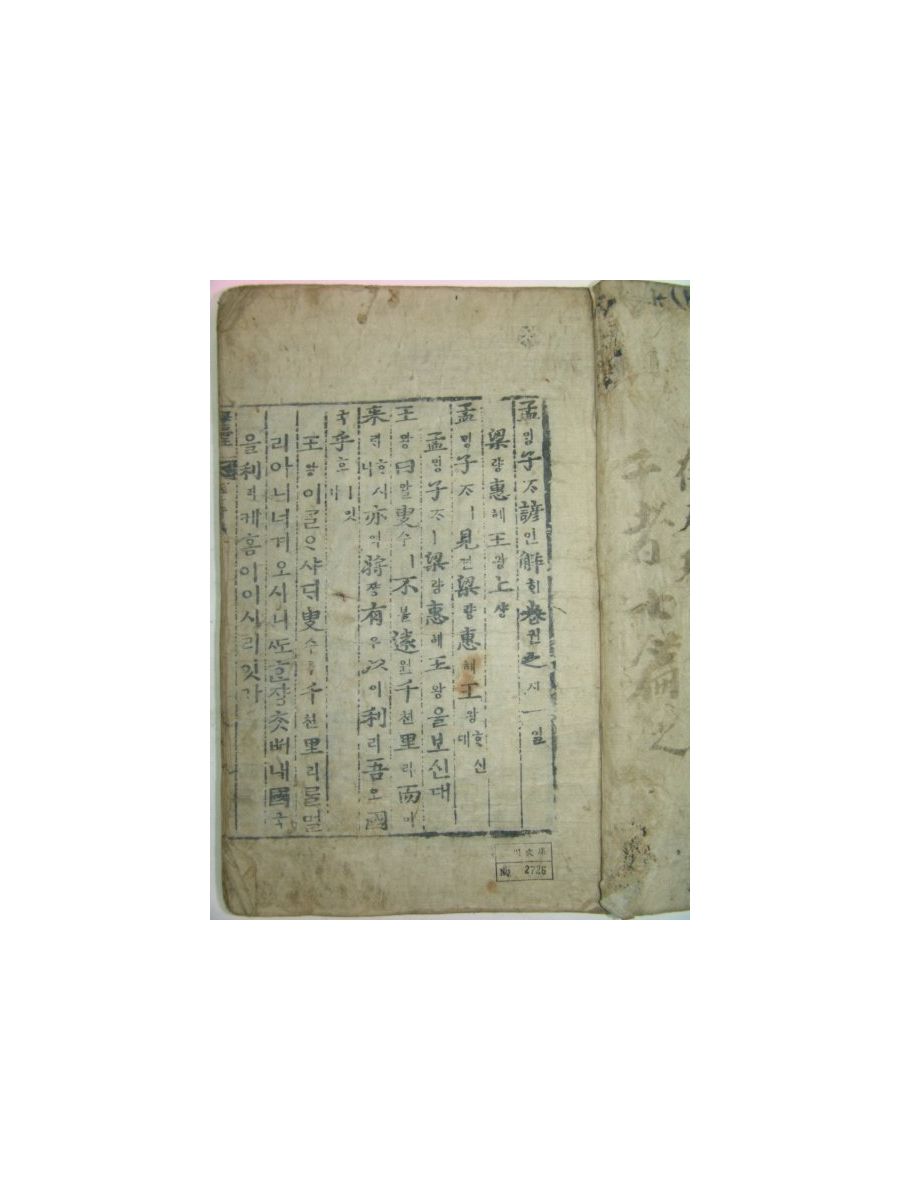 孟밍子ᄌᆞ諺언解ᄒᆡ卷권之지一일
梁량惠혜王왕上샹
孟밍子ᄌᆞㅣ見견梁량惠혜王왕ᄒᆞ신대
孟밍子ᄌᆞㅣ梁량惠혜王왕을보신대
王왕曰왈叟수ㅣ不블遠원千쳔里리而이
來ᄅᆡᄒᆞ시니亦역將쟝有유以이利리吾오國
국乎호ㅣ잇가
王왕이ᄀᆞᆯᄋᆞ샤ᄃᆡ叟수ㅣ千쳔里리ᄅᆞᆯ멀
리아니너겨오시니ᄯᅩᄒᆞᆫ쟝ᄎᆞᆺᄡᅥ내國국
을利리케홈이이시리잇가
者七篇之
2726